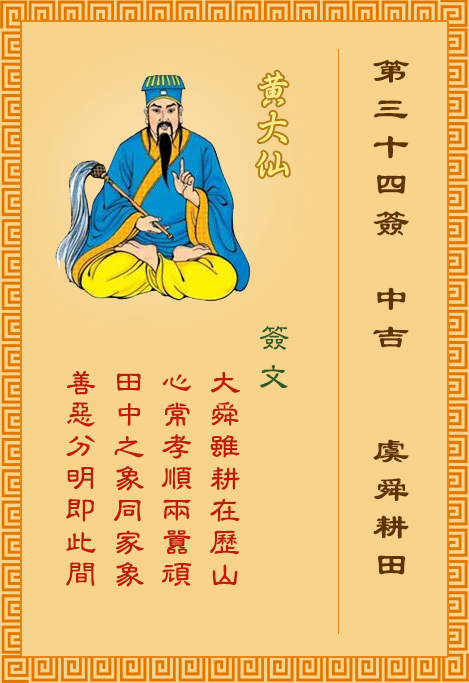 第三十四簽 中吉 虞舜耕田
黄大仙
簽文
大舜雖耕在歷山
心常孝順兩嚚頑
田中之象同家象
善惡分明即此間